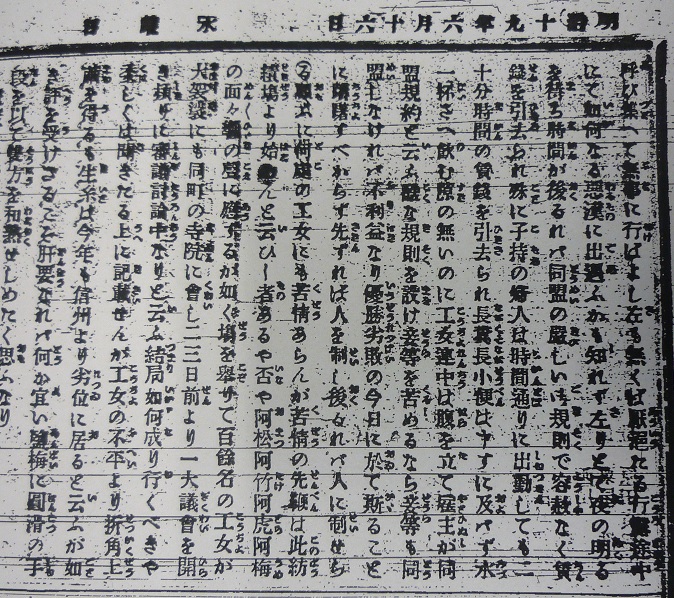 明治十九年六月十六日 水曜日
呼び集へて無事に行けばよし左も無くば途中
にて如何なる悪漢に出遇ふかも知れず左りとて夜の明る
を待ち時間が後るれバ同盟の厳しい規則で容赦なく賃
錢を引去られ殊に子持の婦人は時間通りに出勤しても二
十分時間の賃錢を引去られ長糞長小便は申すに及バず水
一杯さへ飲む隙の無いのに工女連中は腹を立て雇主が同
盟規約と云ふ酷な規則を設け妾等を苦めるなら妾等も同
盟しなけれバ不利益なり優勝劣敗の今日に於て斯ること
に躊躇すべからず先ずれば人を制し後るれバ人に制せら
るゝ思ふに何塲の工女にも苦情あらんが苦情の先鞭は此紡
績塲より始めんと云ひし者あるや否や阿松阿竹阿虎阿梅
の面々響の聲に應ずるが如く塲を挙て百餘名の工女が
大袈裟にも同町の寺院に會し二三日前より一大議會を開
き頻りに審議討論中なりと云ふ結局如何成り行くべきや
委しくは聞きたる上に記載せんが工女の不平より折角上
繭を得るも生糸は今年も信州より劣位に居ると云ふが如
き評を受けざること肝要なれバ何か宜い鹽梅に圓滑の手
段を以て雙方を和熟せしめたく思ふなり